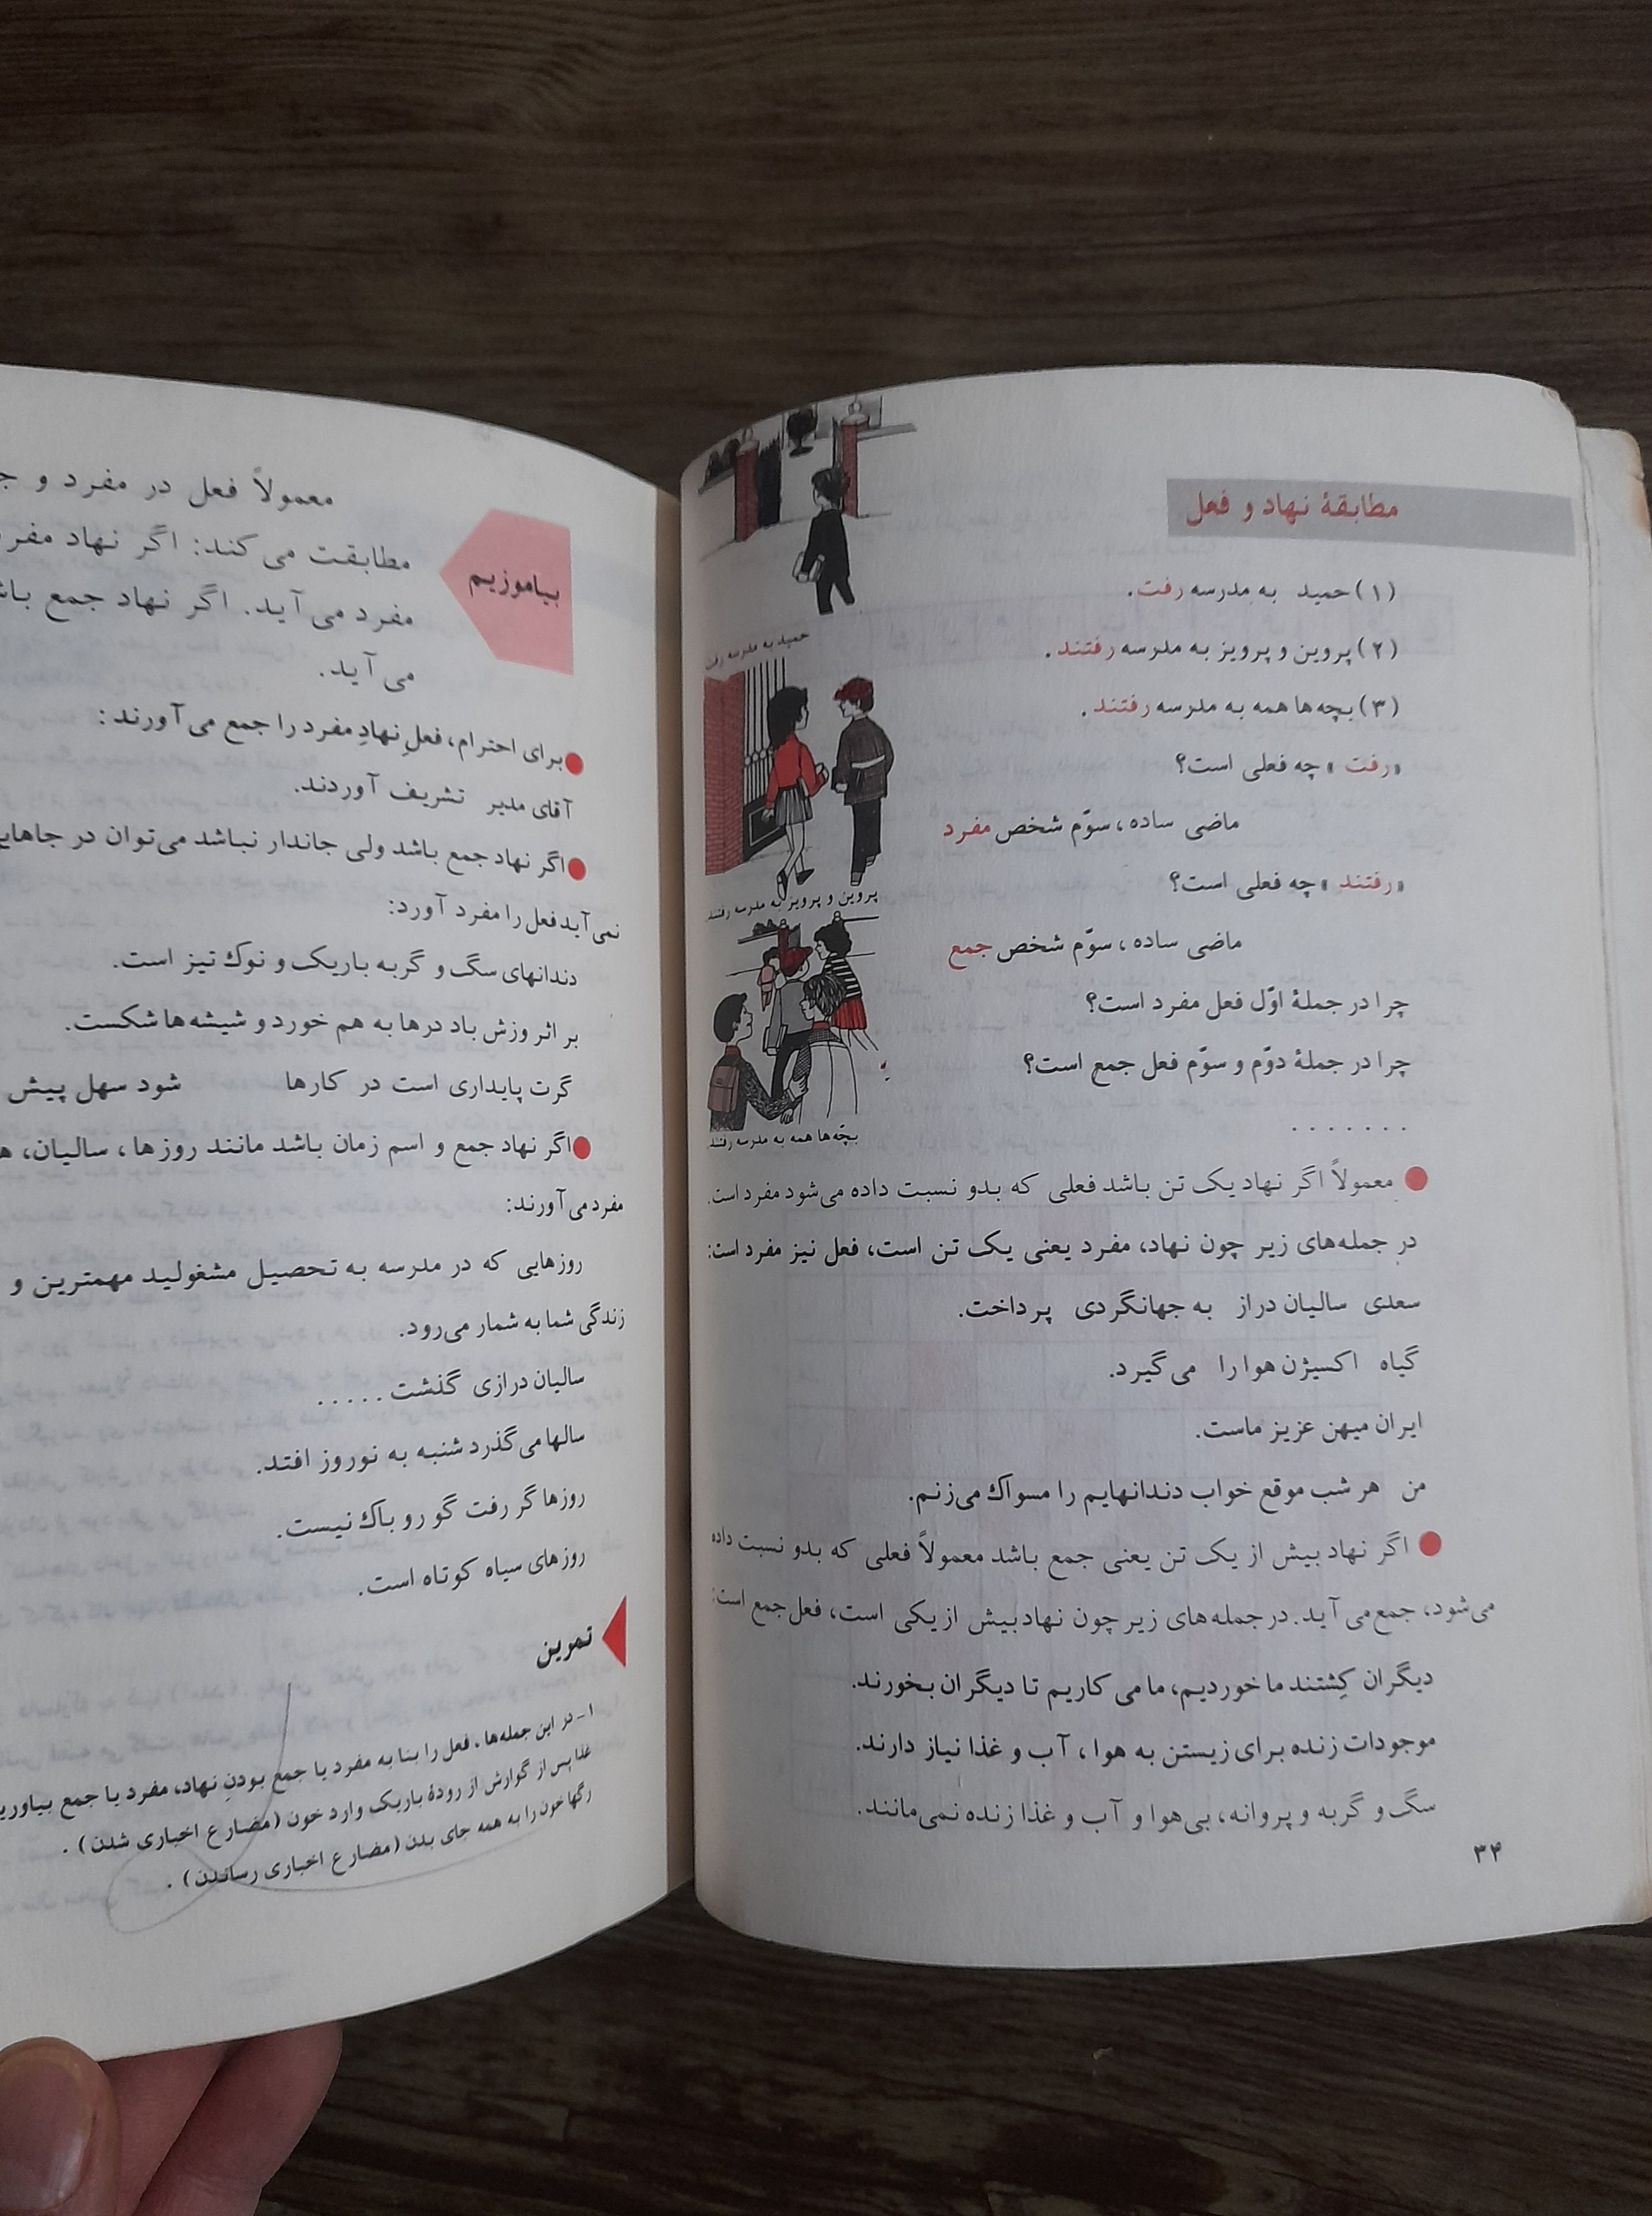 مطابقهٔ نهاد و فعل
(۱) حمید به مدرسه رفت.
(۲) پروین و پرویز به مدرسه رفتند.
(۳) بچه‌ها همه به مدرسه رفتند.
«رفت» چه فعلی است؟
ماضی ساده، سوّم شخص مفرد
«رفتند» چه فعلی است؟
ماضی ساده، سوّم شخص جمع
چرا در جملهٔ اوّل فعل مفرد است؟
چرا در جملهٔ دوّم و سوّم فعل جمع است؟
.......
حمید به مدرسه رفت
پروین و پرویز به مدرسه رفتند
بچّه‌ها همه به مدرسه رفتند
معمولاً اگر نهاد یک تن باشد فعلی که بدو نسبت داده می‌شود مفرد است.
در جمله‌های زیر چون نهاد، مفرد یعنی یک تن است، فعل نیز مفرد است:
سعدی سالیان دراز به جهانگردی پرداخت.
گیاه اکسیژن هوا را می‌گیرد.
ایران میهن عزیز ماست.
من هر شب موقع خواب دندانهایم را مسواک می‌زنم.
اگر نهاد بیش از یک تن یعنی جمع باشد معمولاً فعلی که بدو نسبت داده
می‌شود، جمع می‌آید. در جمله‌های زیر چون نهاد بیش از یکی است، فعل جمع است:
دیگران کِشتند ما خوردیم، ما می کاریم تا دیگران بخورند.
موجودات زنده برای زیستن به هوا، آب و غذا نیاز دارند.
سگ و گربه و پروانه، بی‌هوا و آب و غذا زنده نمی‌مانند.
۳۴
معمولاً فعل در مفرد و
بیاموزیم
مطابقت می‌کند: اگر نهاد
مفرد می‌آید. اگر نهاد جمع
می‌آید.
برای احترام، فعلِ نهادِ مفرد را جمع می‌آورند:
آقای مدیر تشریف آوردند.
اگر نهاد جمع باشد ولی جاندار نباشد می‌توان در
نمی‌آید فعل را مفرد آورد:
دندانهای سگ و گربه باریک و نوک تیز است.
بر اثر وزش باد درها به هم خورد و شیشه‌ها شکست.
گرت پایداری است در کارها شود سهل پیش
اگر نهاد جمع و اسم زمان باشد مانند روزها، سالیان،
مفرد می‌آورند:
روزهایی که در مدرسه به تحصیل مشغولید مهمترین و
زندگی شما به شمار می‌رود.
سالیان درازی گذشت.....
سالها می‌گذرد شنبه به نوروز افتد.
روزها گر رفت گو رو باک نیست.
روزهای سیاه کوتاه است.
تمرین
۱- در این جمله‌ها، فعل را بنا به مفرد یا جمع بودنِ نهاد، مفرد یا جمع
غذا پس از گوارش از رودهٔ باریک وارد خون (مضارع اخباری شدن).
رگها خون را به همه جای بدن (مضارع اخباری رساندن).